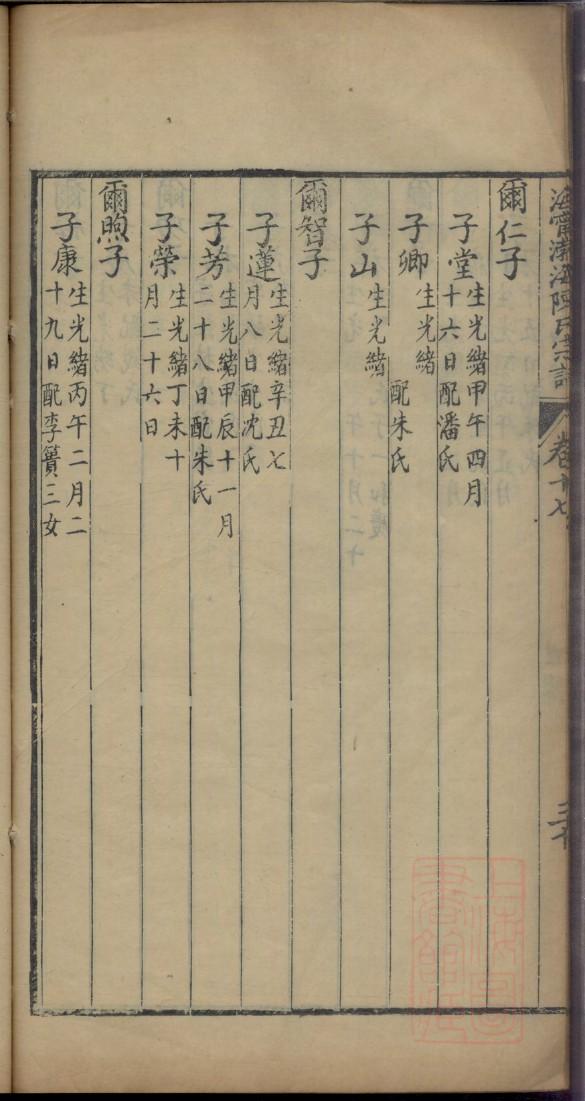 海寧渤海陳氏宗譜
卷十七
三十
爾仁子
子堂
生光緒甲午四月
十六日配潘氏
子卿
生光緒
配朱氏
子山
生光緒
爾智子
子蓮
生光緒辛丑七
月八日配沈氏
子芳
生光緒甲辰十一月
二十八日配朱氏
子榮
生光緒丁未十
月二十六日
爾煦子
子康
生光緒丙午二月二
十九日配李簣三女
上海圖
書館藏